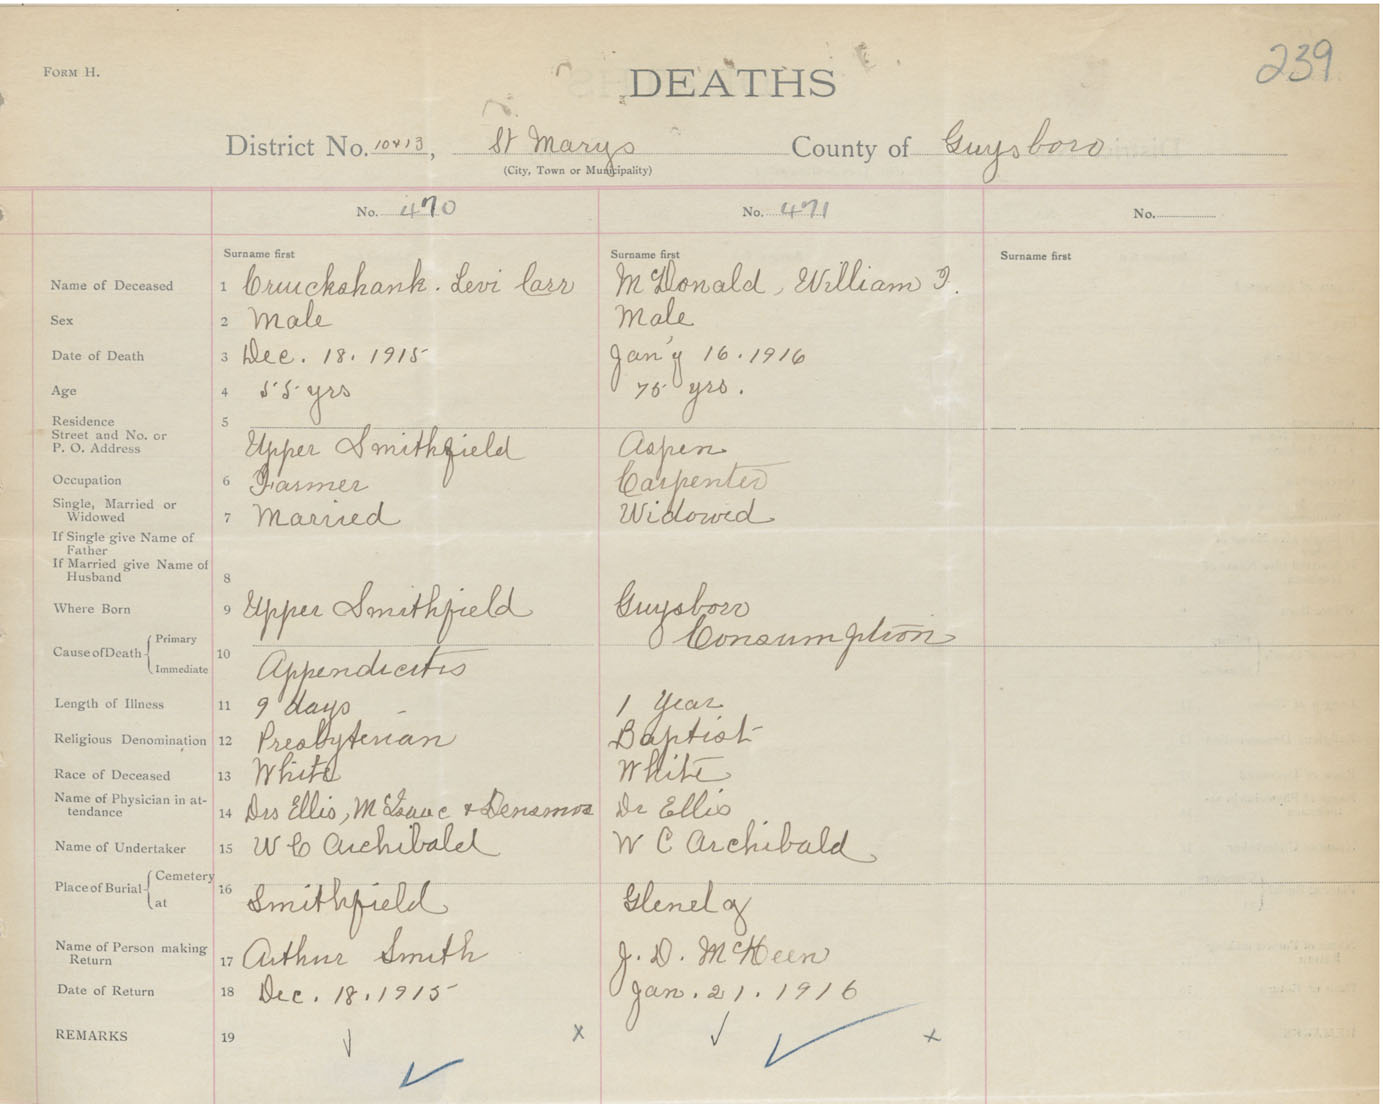 239
Form H.
DEATHS
District No. 10 & 13, St Marys County of Guysboro
(City, Town or Municipality)
No. 470 No. 471 No.
Surname first Surname first Surname first
Name of Deceased 1 Cruickshank. Levi Carr McDonald, William F.
Sex 2 Male Male
Date of Death 3 Dec. 18. 1915 Jan'y 16. 1916
Age 4 55 yrs 75 yrs.
Residence 5
Street and No. or
P. O. Address Upper Smithfield Aspen
Occupation 6 Farmer Carpenter
Single, Married or
Widowed 7 Married Widowed
If Single give Name of
Father
If Married give Name of
Husband 8
Where Born 9 Upper Smithfield Guysboro
Cause of Death Primary Consumption
10
Immediate Appendicitis
Length of Illness 11 9 days 1 Year
Religious Denomination 12 Presbyterian Baptist
Race of Deceased 13 White White
Name of Physician in at-
tendance 14 Drs Ellis, McIsaac & Densmore Dr Ellis
Name of Undertaker 15 W C Archibald W C Archibald
Place of Burial Cemetery 16
at Smithfield Glenelg
Name of Person making
Return 17 Arthur Smith J. D. McKeen
Date of Return 18 Dec. 18. 1915 Jan. 21. 1916
REMARKS 19 x x